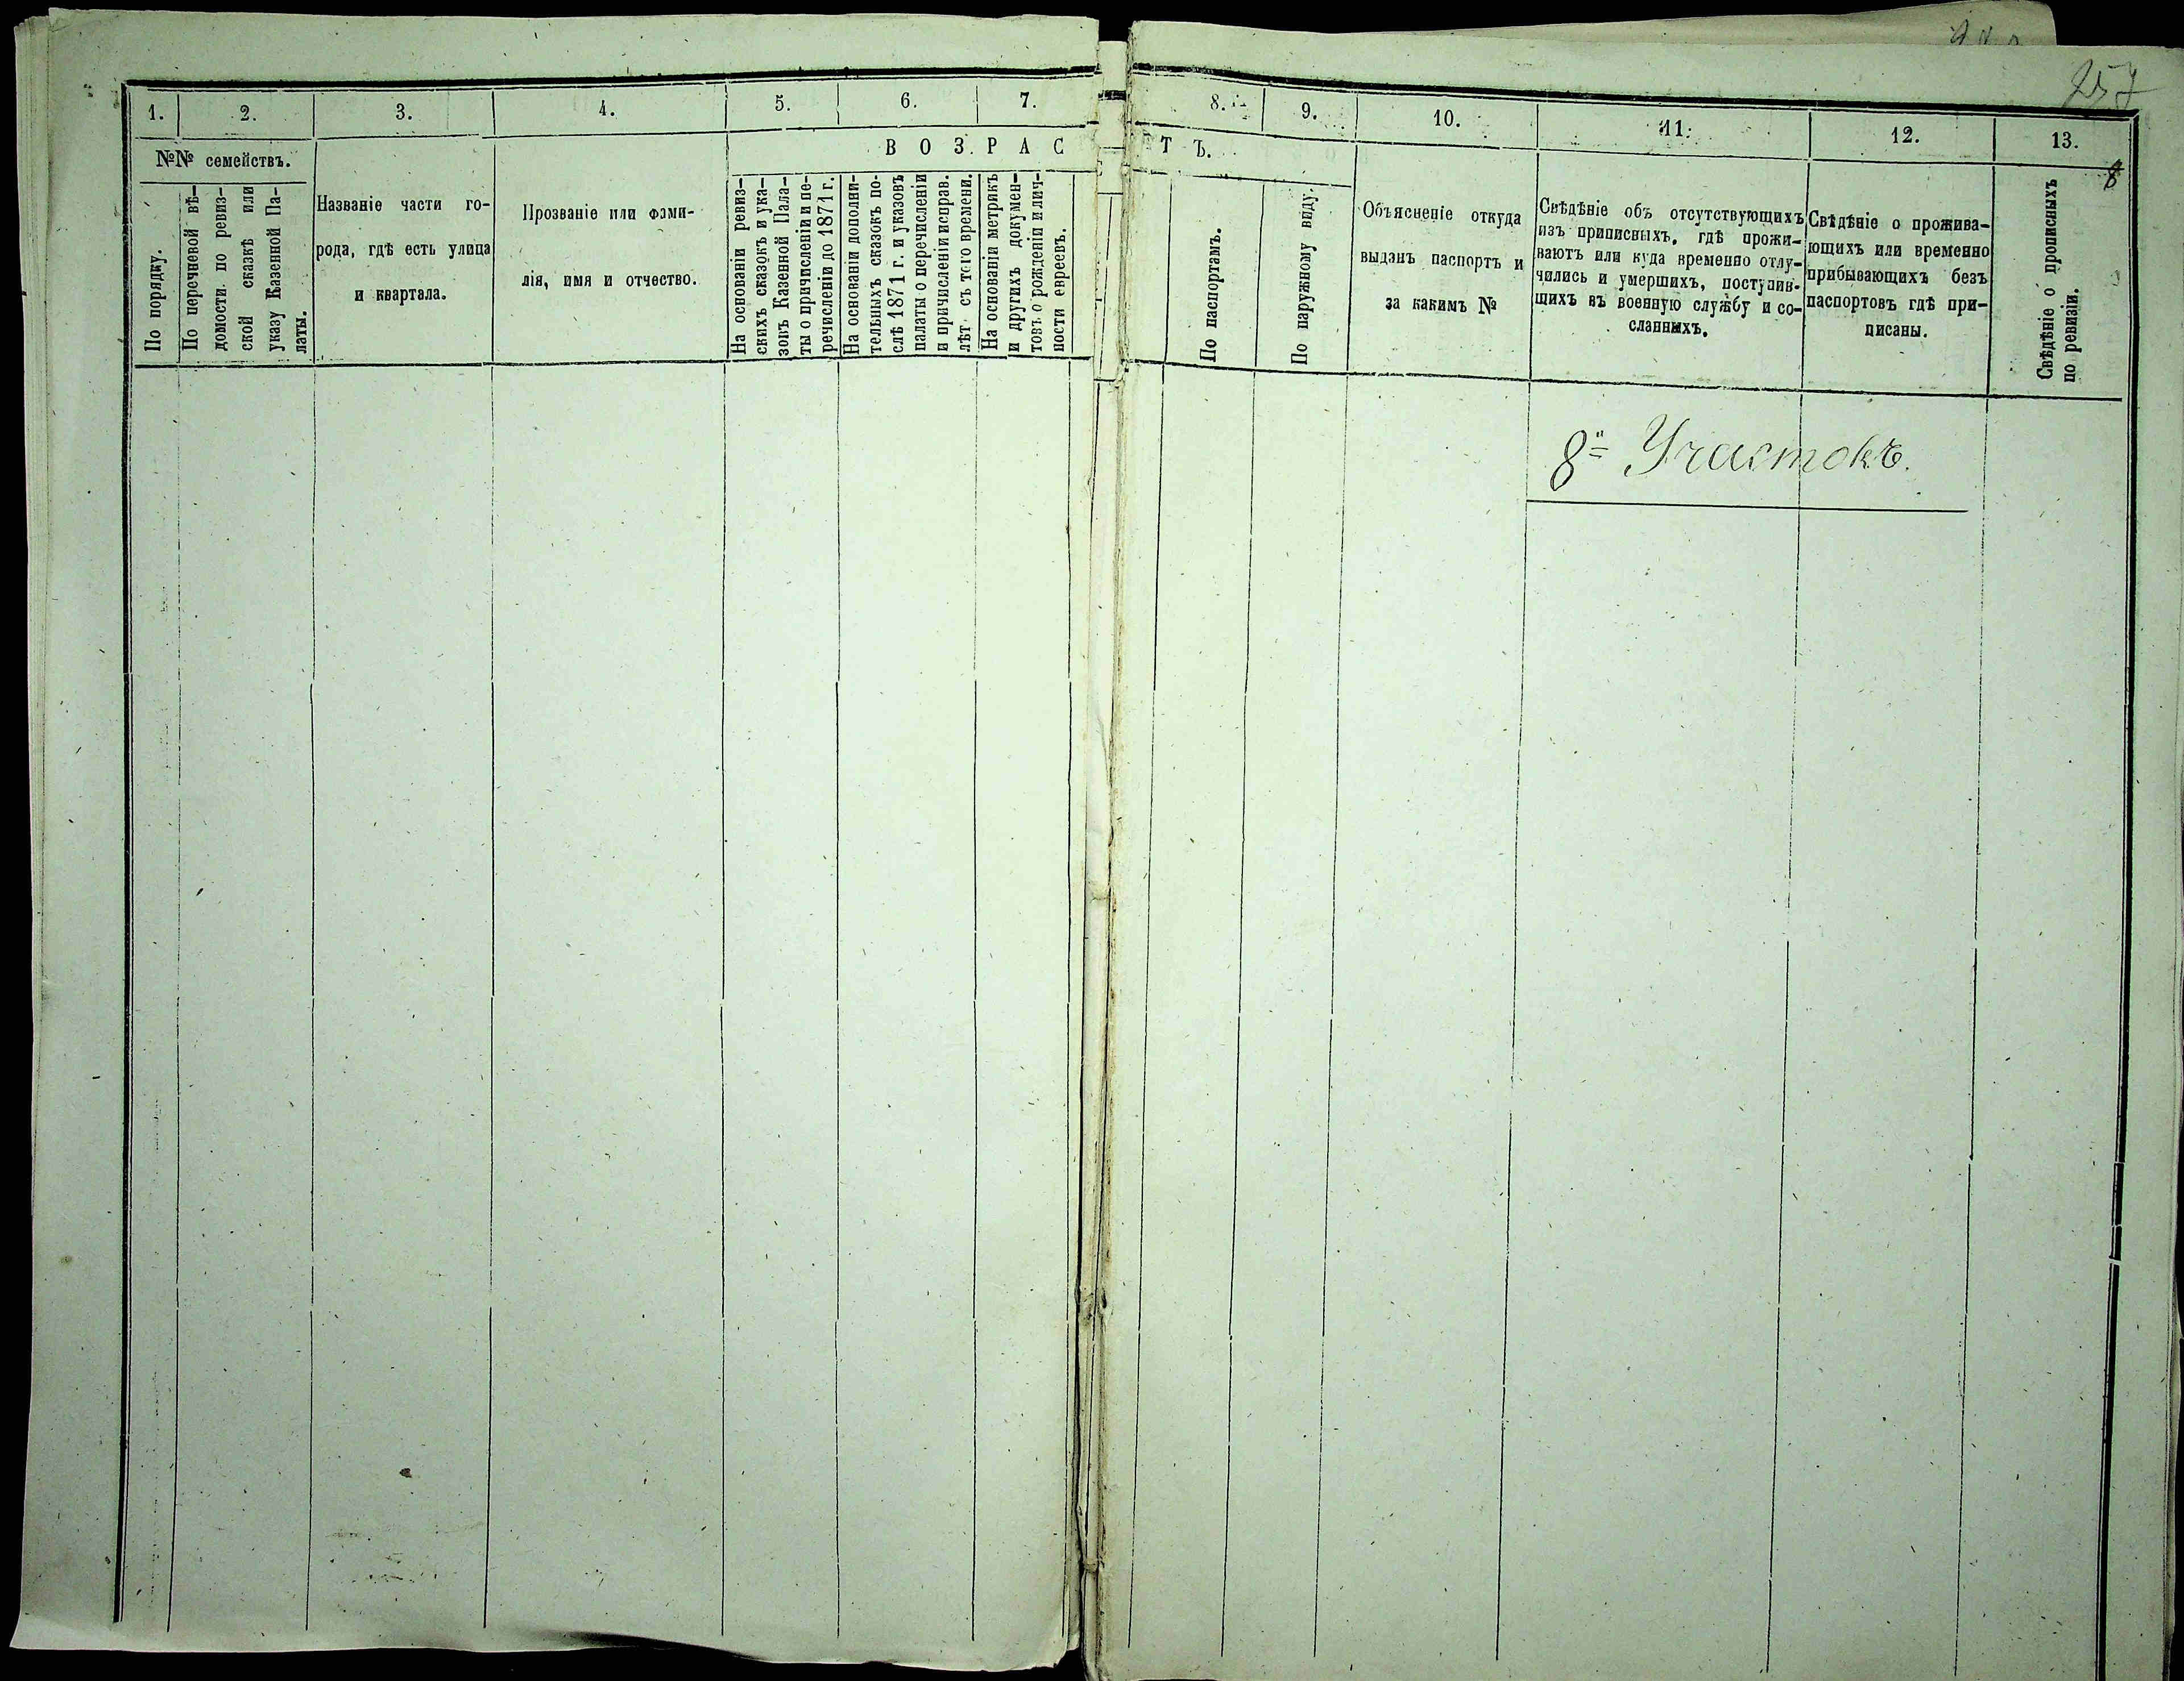 257
1. 2. 3. 4. 5. 6. 7. 8. 9. 10. 11. 12. 13.
8
№№ семействъ.
По порядку.
По перечневой вѣ-
домости по ревиз-
ской сказкѣ или
указу Казенной Па-
латы.
Названіе части го-
рода, гдѣ есть улица
и квартала.
Прозваніе или фами-
лія, имя и отчество.
ВОЗРАСТЪ.
На основаніи ревиз-
скихъ сказокъ и ука-
зовъ Казенной Пала-
ты о причисленіи и пе-
речисленіи до 1871 г.
На основаніи дополни-
тельныхъ сказокъ по-
слѣ 1871 г. и указовъ
палаты о перечисленіи
и причисленіи исправ.
лѣт съ того времени.
На основаніи метрикъ
и другихъ докумен-
товъ о рожденіи и лич-
ности евреевъ.
По паспортамъ.
По наружному виду.
Объясненіе откуда
выданъ паспортъ и
за какимъ №
Свѣдѣніе объ отсутствующихъ
изъ приписныхъ, гдѣ прожи-
ваютъ или куда временно отлу-
чились и умершихъ, поступив-
шихъ въ военную службу и со-
сланныхъ.
Свѣдѣніе о прожива-
ющихъ или временно
прибывающихъ безъ
паспортовъ гдѣ при-
писаны.
Свѣдѣніе о прописныхъ
по ревизіи.
8й Участокъ.